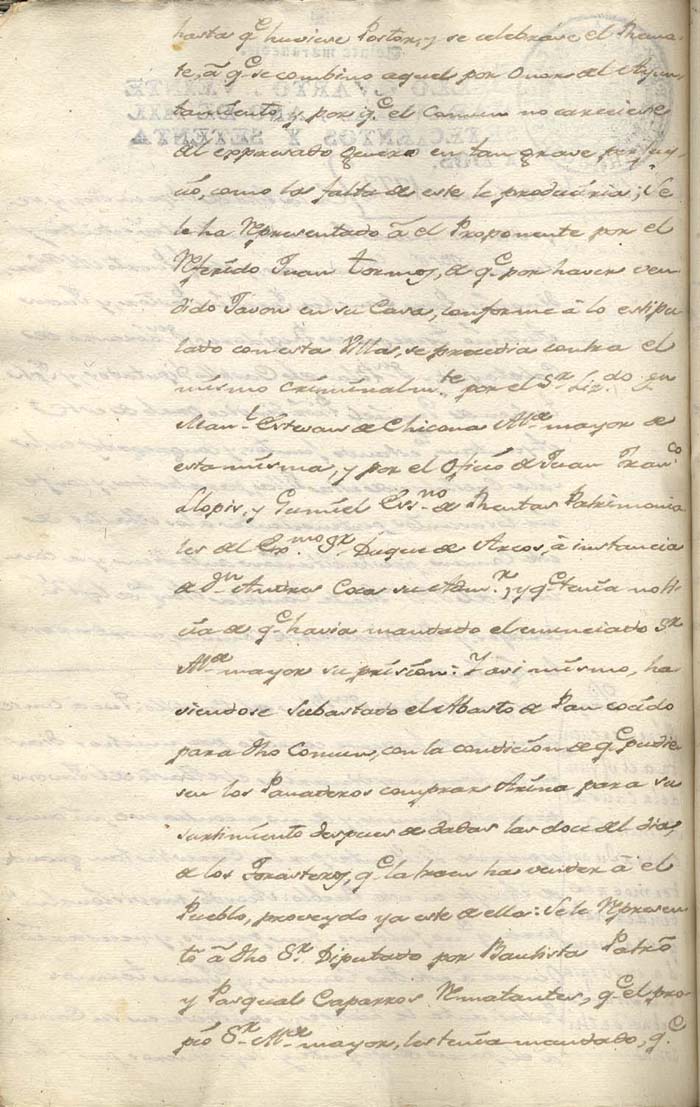 hasta q.e huviese Postor, y se celebrase el Rema-
te, â q.e se combino aquel por Onor del Ayun-
tamiento y por q.e el Comun no careciese
del expresado genero en tan grave perjuy-
cio, como la falta de este le produciria; Se
le ha Representado â el Proponente por el
Referido Juan Tormos, de q.e por haver ven-
dido Javon en su Casa, conforme â lo estipu-
lado con esta Villa, se procedia contra el
mismo criminalm.te por el S.r Liz.do D.n
Man.l Estevan de Chicona Al.e mayor de
esta misma, y por el Oficio de Juan Fran.co
Llopis, y Gumiel Ess.no de Rentas Patrimonia
les del Ex.mo S.r Duque de Arcos, â instancia
de D.n Andres Coca su Adm.r, y q.e tenia noti-
cia de q.e havia mandado el enunciado S.r
Al.e mayor su prision: Y asi mismo, ha-
viendose Subastado el Abasto de Pan cocido
para dho Comun, con la condicion de q.e pudie-
sen los Panaderos comprar Arina para su
surtimiento despues de dadas las doce del dia,
de los Forasteros, q.e la traen ha vender â el
Pueblo, proveydo ya este de ella: Se le Represen-
tô â dho S.r Diputado por Bautista Patrô
y Pasqual Caparros Rematantes, q.e el pro-
pio S.r Al.e mayor, les tenia mandado, q.e